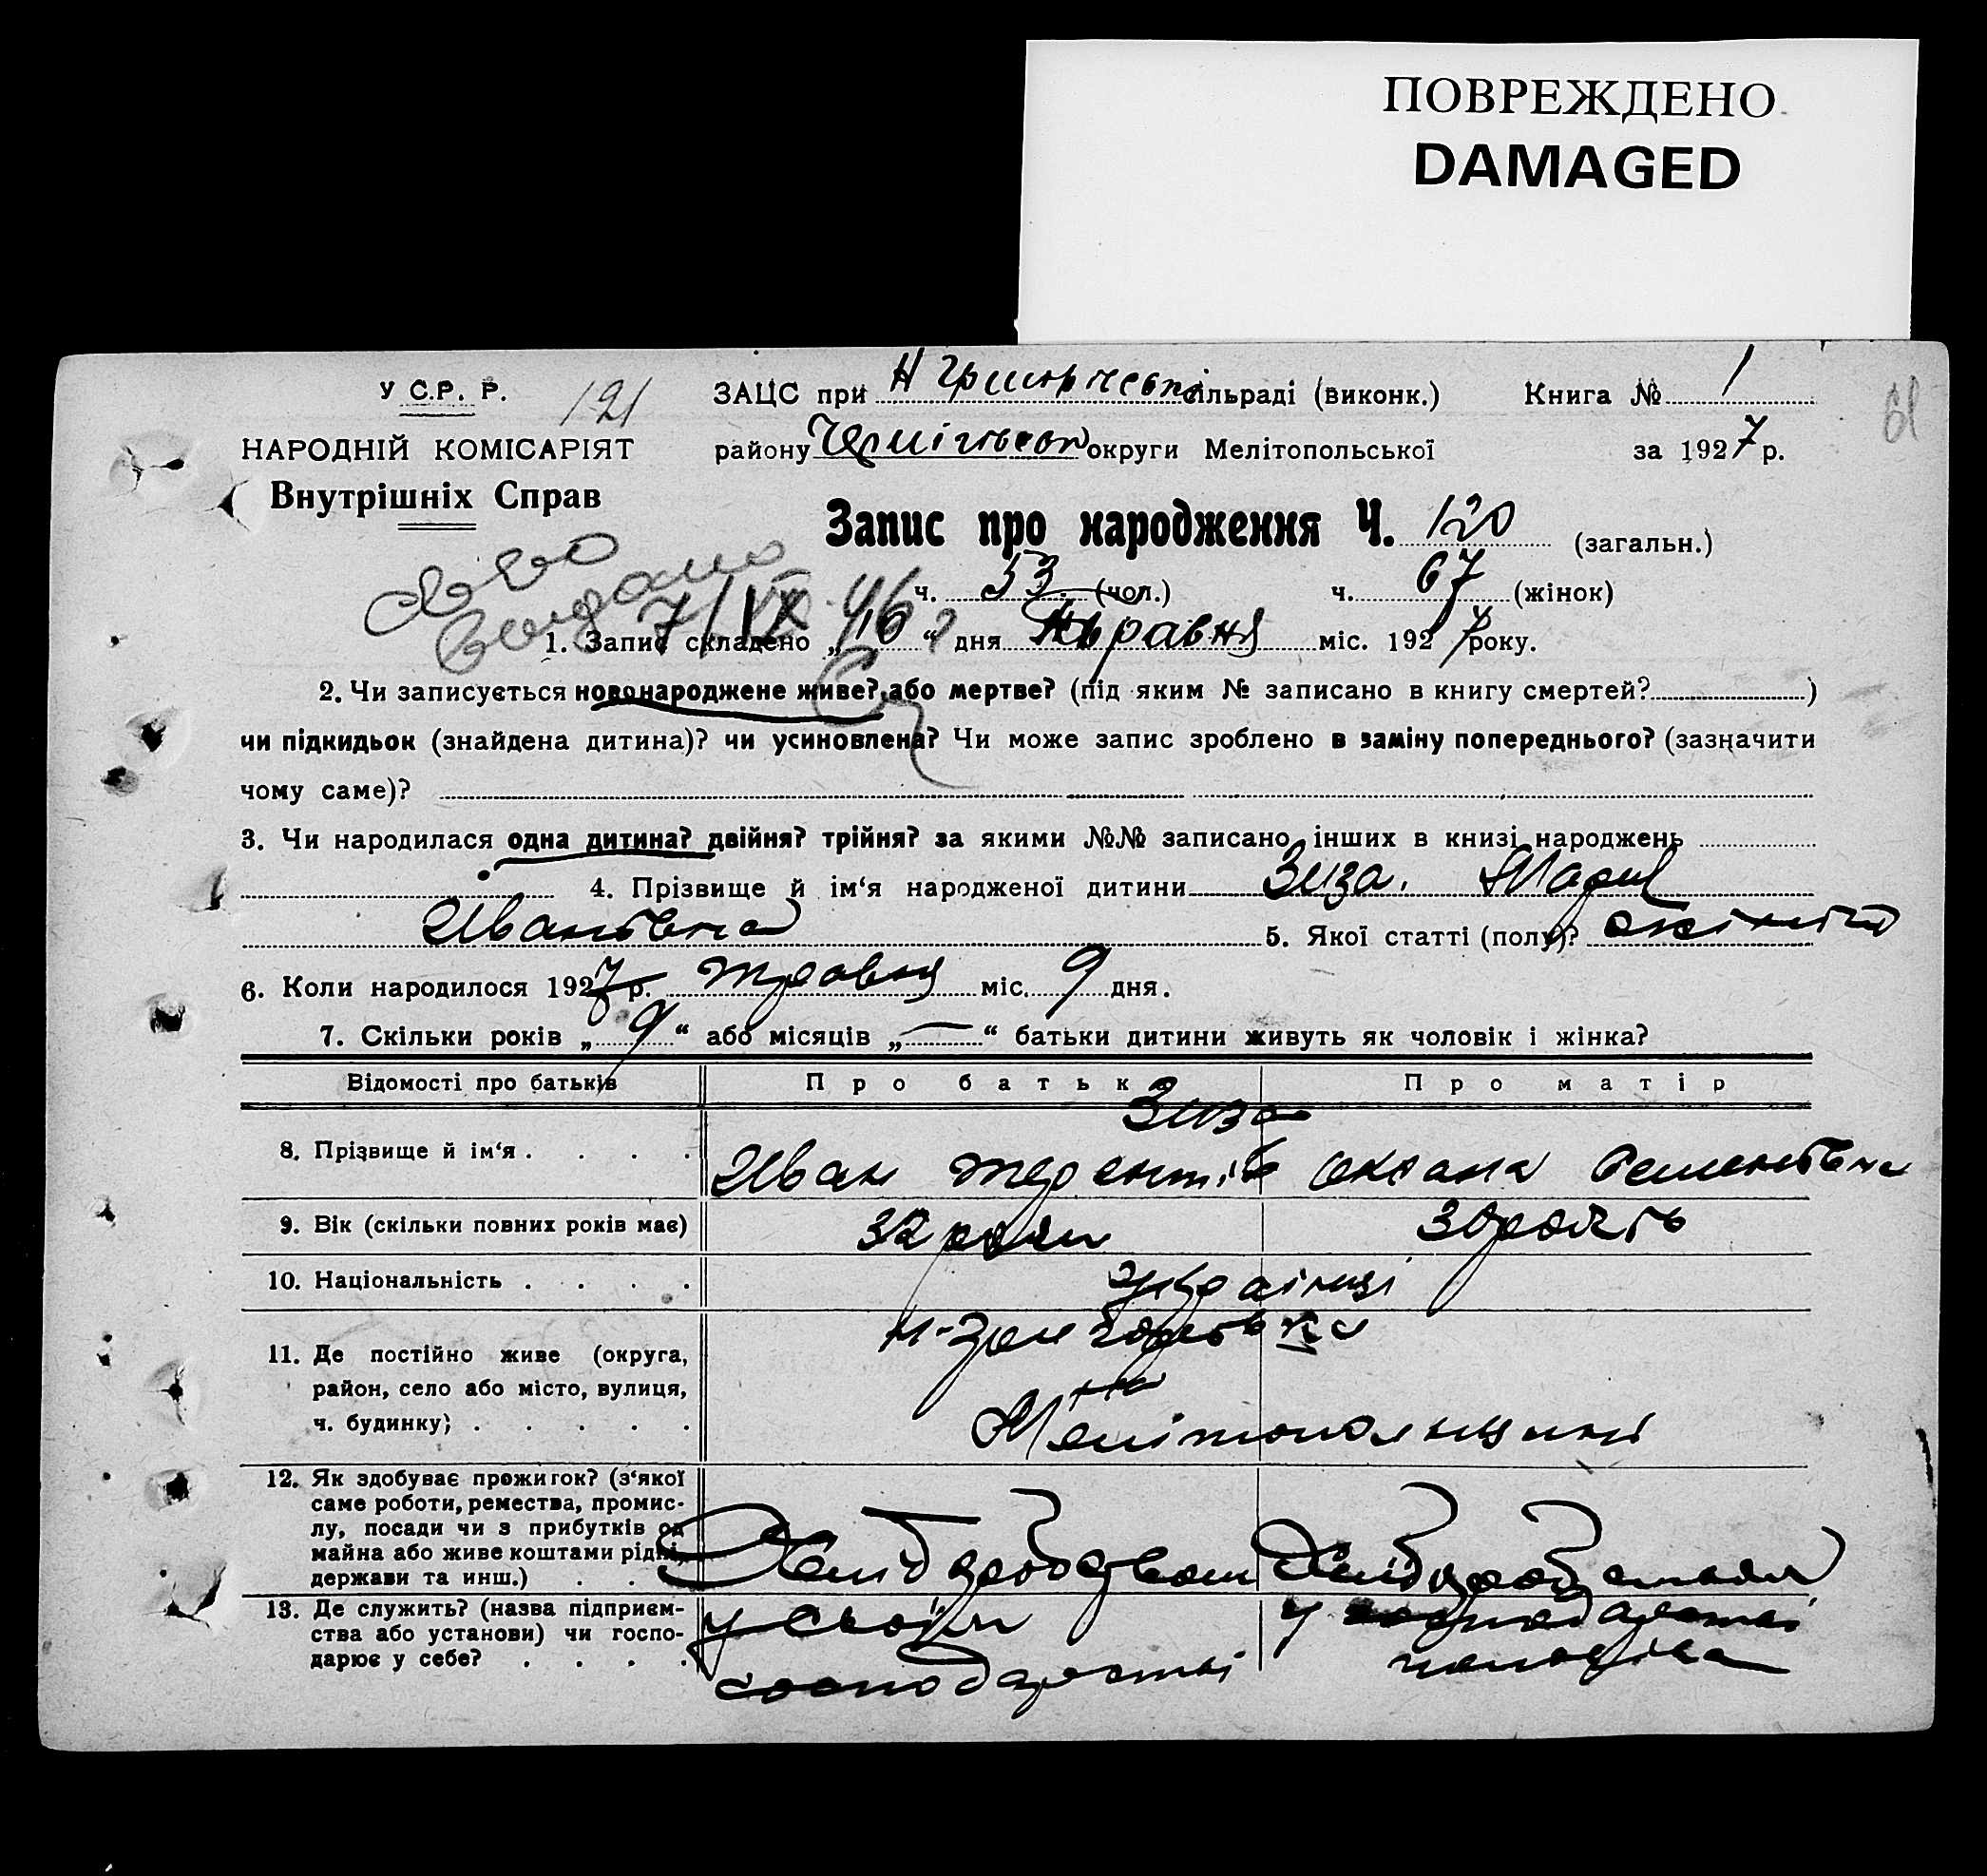 ПОВРЕЖДЕНО
DAMAGED
У С.Р. Р. 121 ЗАЦС при сільраді (виконк.) Книга № 1 61
НАРОДНІЙ КОМІСАРІЯТ району округи Мелітопольської за 1927 р.
Внутрішніх Справ
Запис про народження Ч. 120 (загальн.)
ч. 53 (чол.) ч. 67 (жінок)
7/IX 46
1. Запис складено „16“ дня Травня міс. 1927 року.
2. Чи записується новонароджене живе? або мертве? (під яким № записано в книгу смертей? )
чи підкидьок (знайдена дитина)? чи усиновлена? Чи може запис зроблено в заміну попереднього? (зазначити
чому саме)?
3. Чи народилася одна дитина? двійня? трійня? за якими №№ записано інших в книзі народжень
4. Прізвище й ім‘я народженої дитини Зиза. Марія
5. Якої статті (полу)?
6. Коли народилося 1927 р. травня міс. 9 дня.
7. Скільки років „9“ або місяців „—“ батьки дитини живуть як чоловік і жінка?
Відомості про батьків Про батька Про матір
Зиза
8. Прізвище й ім‘я . . . . Иван Терентіев Оксана
9. Вік (скільки повних років має) 32 роки 30 років
10. Національність . . . . українці
11. Де постійно живе (округа,
район, село або місто, вулиця,
ч. будинку) . . . . . Мелітопольщини
12. Як здобуває прожиток? (з‘якої
саме роботи, ремества, промис-
лу, посади чи з прибутків од
майна або живе коштами рідні,
держави та инш.) . . Хліборобством
13. Де служить? (назва підприєм- у своїм у господарстві
ства або установи) чи госпо-
дарює у себе? . . . . господарстві чоловіка